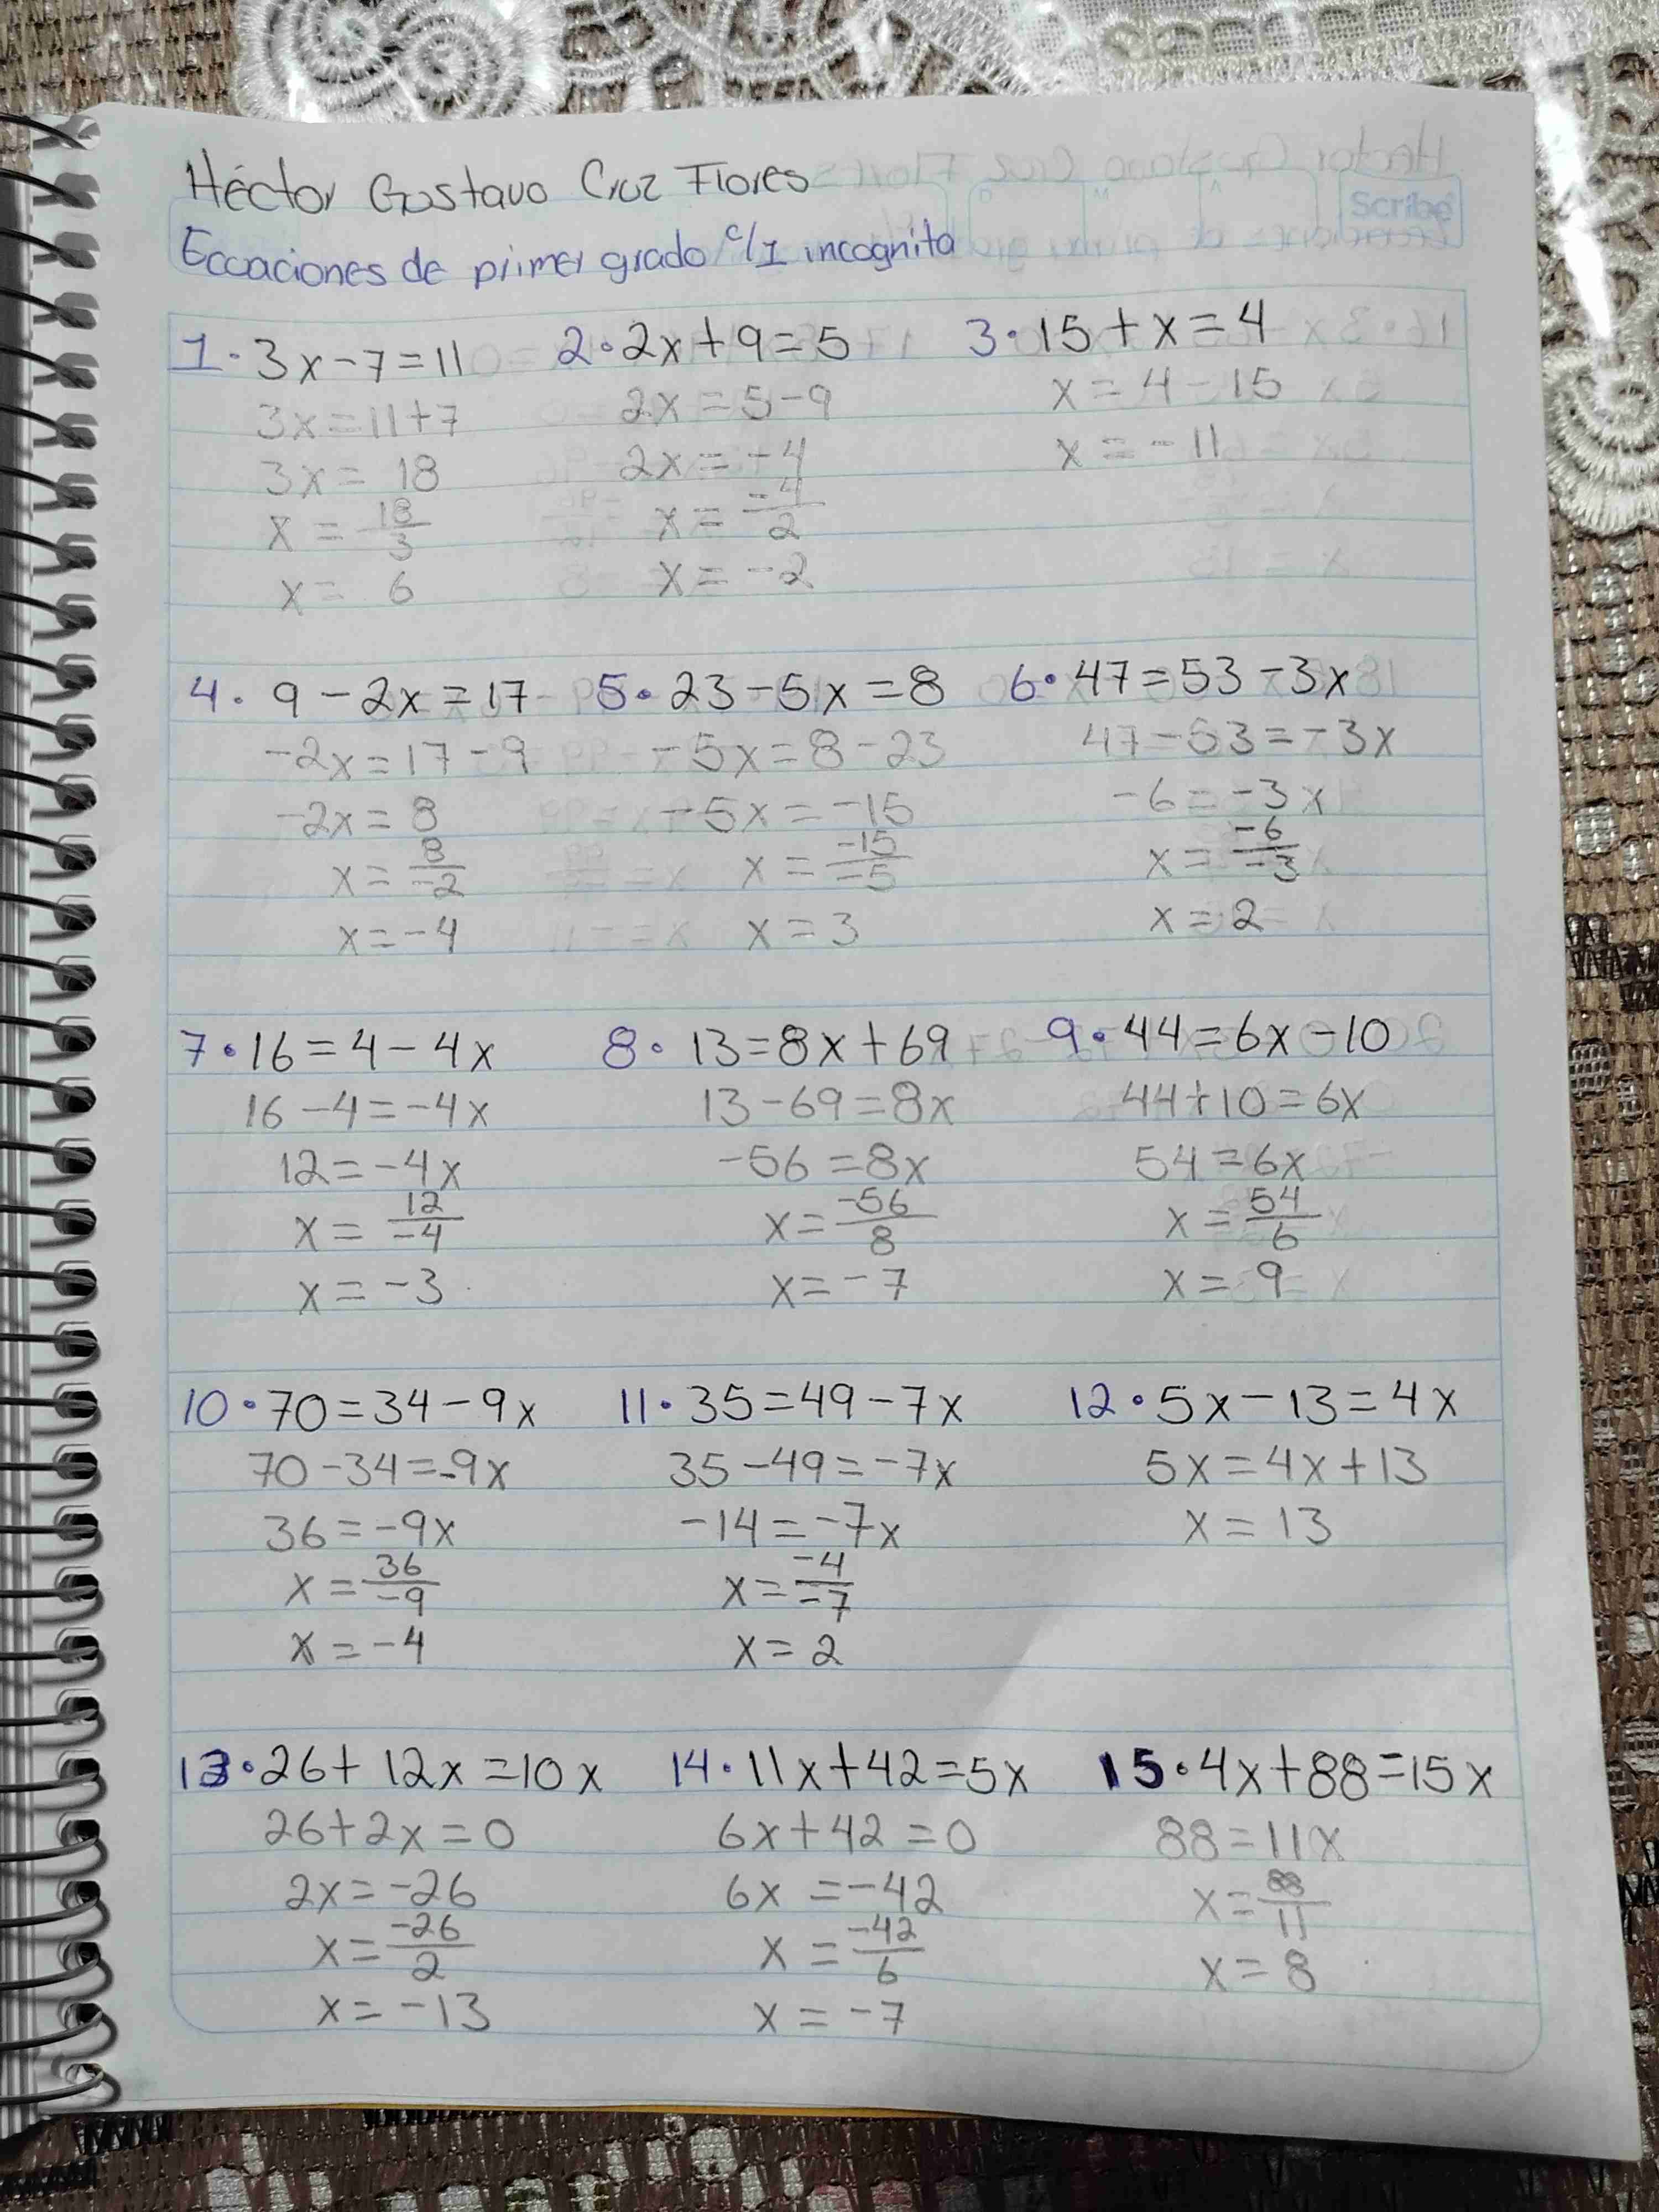 Héctor Gustavo Cruz Flores
Scribe
Ecuaciones de primer grado c/1 incognita
1. 3x-7=11
3x=11+7
3x= 18
x = 18/3
x= 6
2. 2x+9=5
2x=5-9
2x=-4
x= -4/2
x= -2
3. 15+x=4
x= 4-15
x=-11
4. 9-2x=17
-2x=17-9
-2x=8
x= 8/-2
x=-4
5. 23-5x=8
-5x=8-23
-5x=-15
x = -15/-5
x=3
6. 47=53-3x
47-53=-3x
-6=-3x
x= -6/-3
x=2
7. 16=4-4x
16-4=-4x
12=-4x
x= 12/-4
x=-3
8. 13=8x+69
13-69=8x
-56=8x
x= -56/8
x=-7
9. 44=6x-10
44+10=6x
54=6x
x= 54/6
x=9
10. 70=34-9x
70-34=-9x
36=-9x
x= 36/-9
x=-4
11. 35=49-7x
35-49=-7x
-14=-7x
x= -4/-7
x=2
12. 5x-13=4x
5x=4x+13
x=13
13. 26+12x=10x
26+2x=0
2x=-26
x= -26/2
x=-13
14. 11x+42=5x
6x+42=0
6x=-42
x= -42/6
x=-7
15. 4x+88=15x
88=11x
x= 88/11
x=8